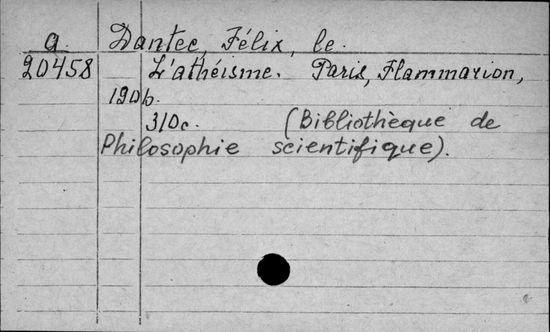 a Dantec, Félix, le.
20458 L'athéisme. Paris, Flammarion,
1906.
310c. (Bibliothèque de
Philosophie scientifique).